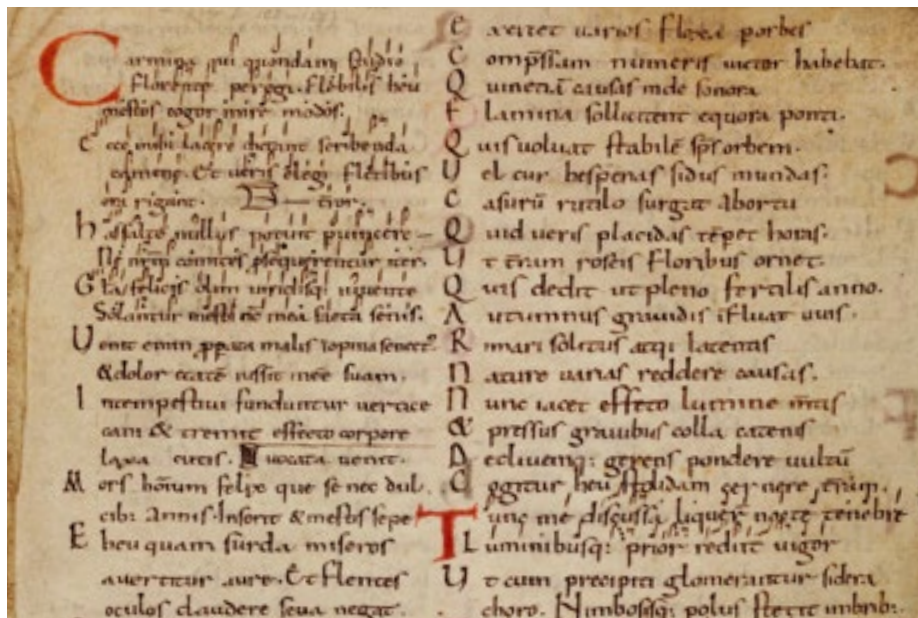 Carmina qui quondam studio
florente peregi. Flebilis heu
mestos cogor inire modos.
Ecce mihi lacere dictant scribenda
camene. Et ueris elegi fletibus
ora rigant. terror.
has saltē nullus potuit puincere
Ne comites psequerentur iter.
Gła felicis olim uiridisq; iuuente
Solantur mesti mea fata senis.
Uenit enim ꝓpata malis inopina senect᷒
& dolor etatē iussit inee suam.
Intempestiui funduntur uertice
cani & tremit effeto corpore
laxa cutis. uocata uenit.
Mors hoīum felix que se nec dul
cib: Annis. Inserit & mestis sepe
Eheu quam surda miseros
auertitur aure. Et flentes
oculos claudere seua negat.
Exeret uarios flexa porbes
Comp̄ssam numeris uictor habebat.
Quinetiā causas unde sonora
Flamina sollicitent equora ponti.
Quis uoluat stabilē sp̄s orbem.
Uel cur hesperias sidus inundas.
Casurū rutilo surgat abortu
Quid ueris placidas tēpet horas.
Ut t̄ram roseis floribus ornet.
Quis dedit ut pleno fertilis anno.
Autumnus grauidis ifluat uuis.
Rimari solitus atq; latentis
Nature uarias reddere causas.
Nunc iacet effeto lumine m̄tis
& pressus grauibus colla catenis
Decliuemq: gerens pondere uultū
Cogitur heu stolidam cernere t̄ram.
Tunc me discussa liquer nocte tenebre
Luminibusq: prior rediit uigor
Ut cum precipiti glomerantur sidera
choro. Nimbosisq: polus stetit imbrib:.